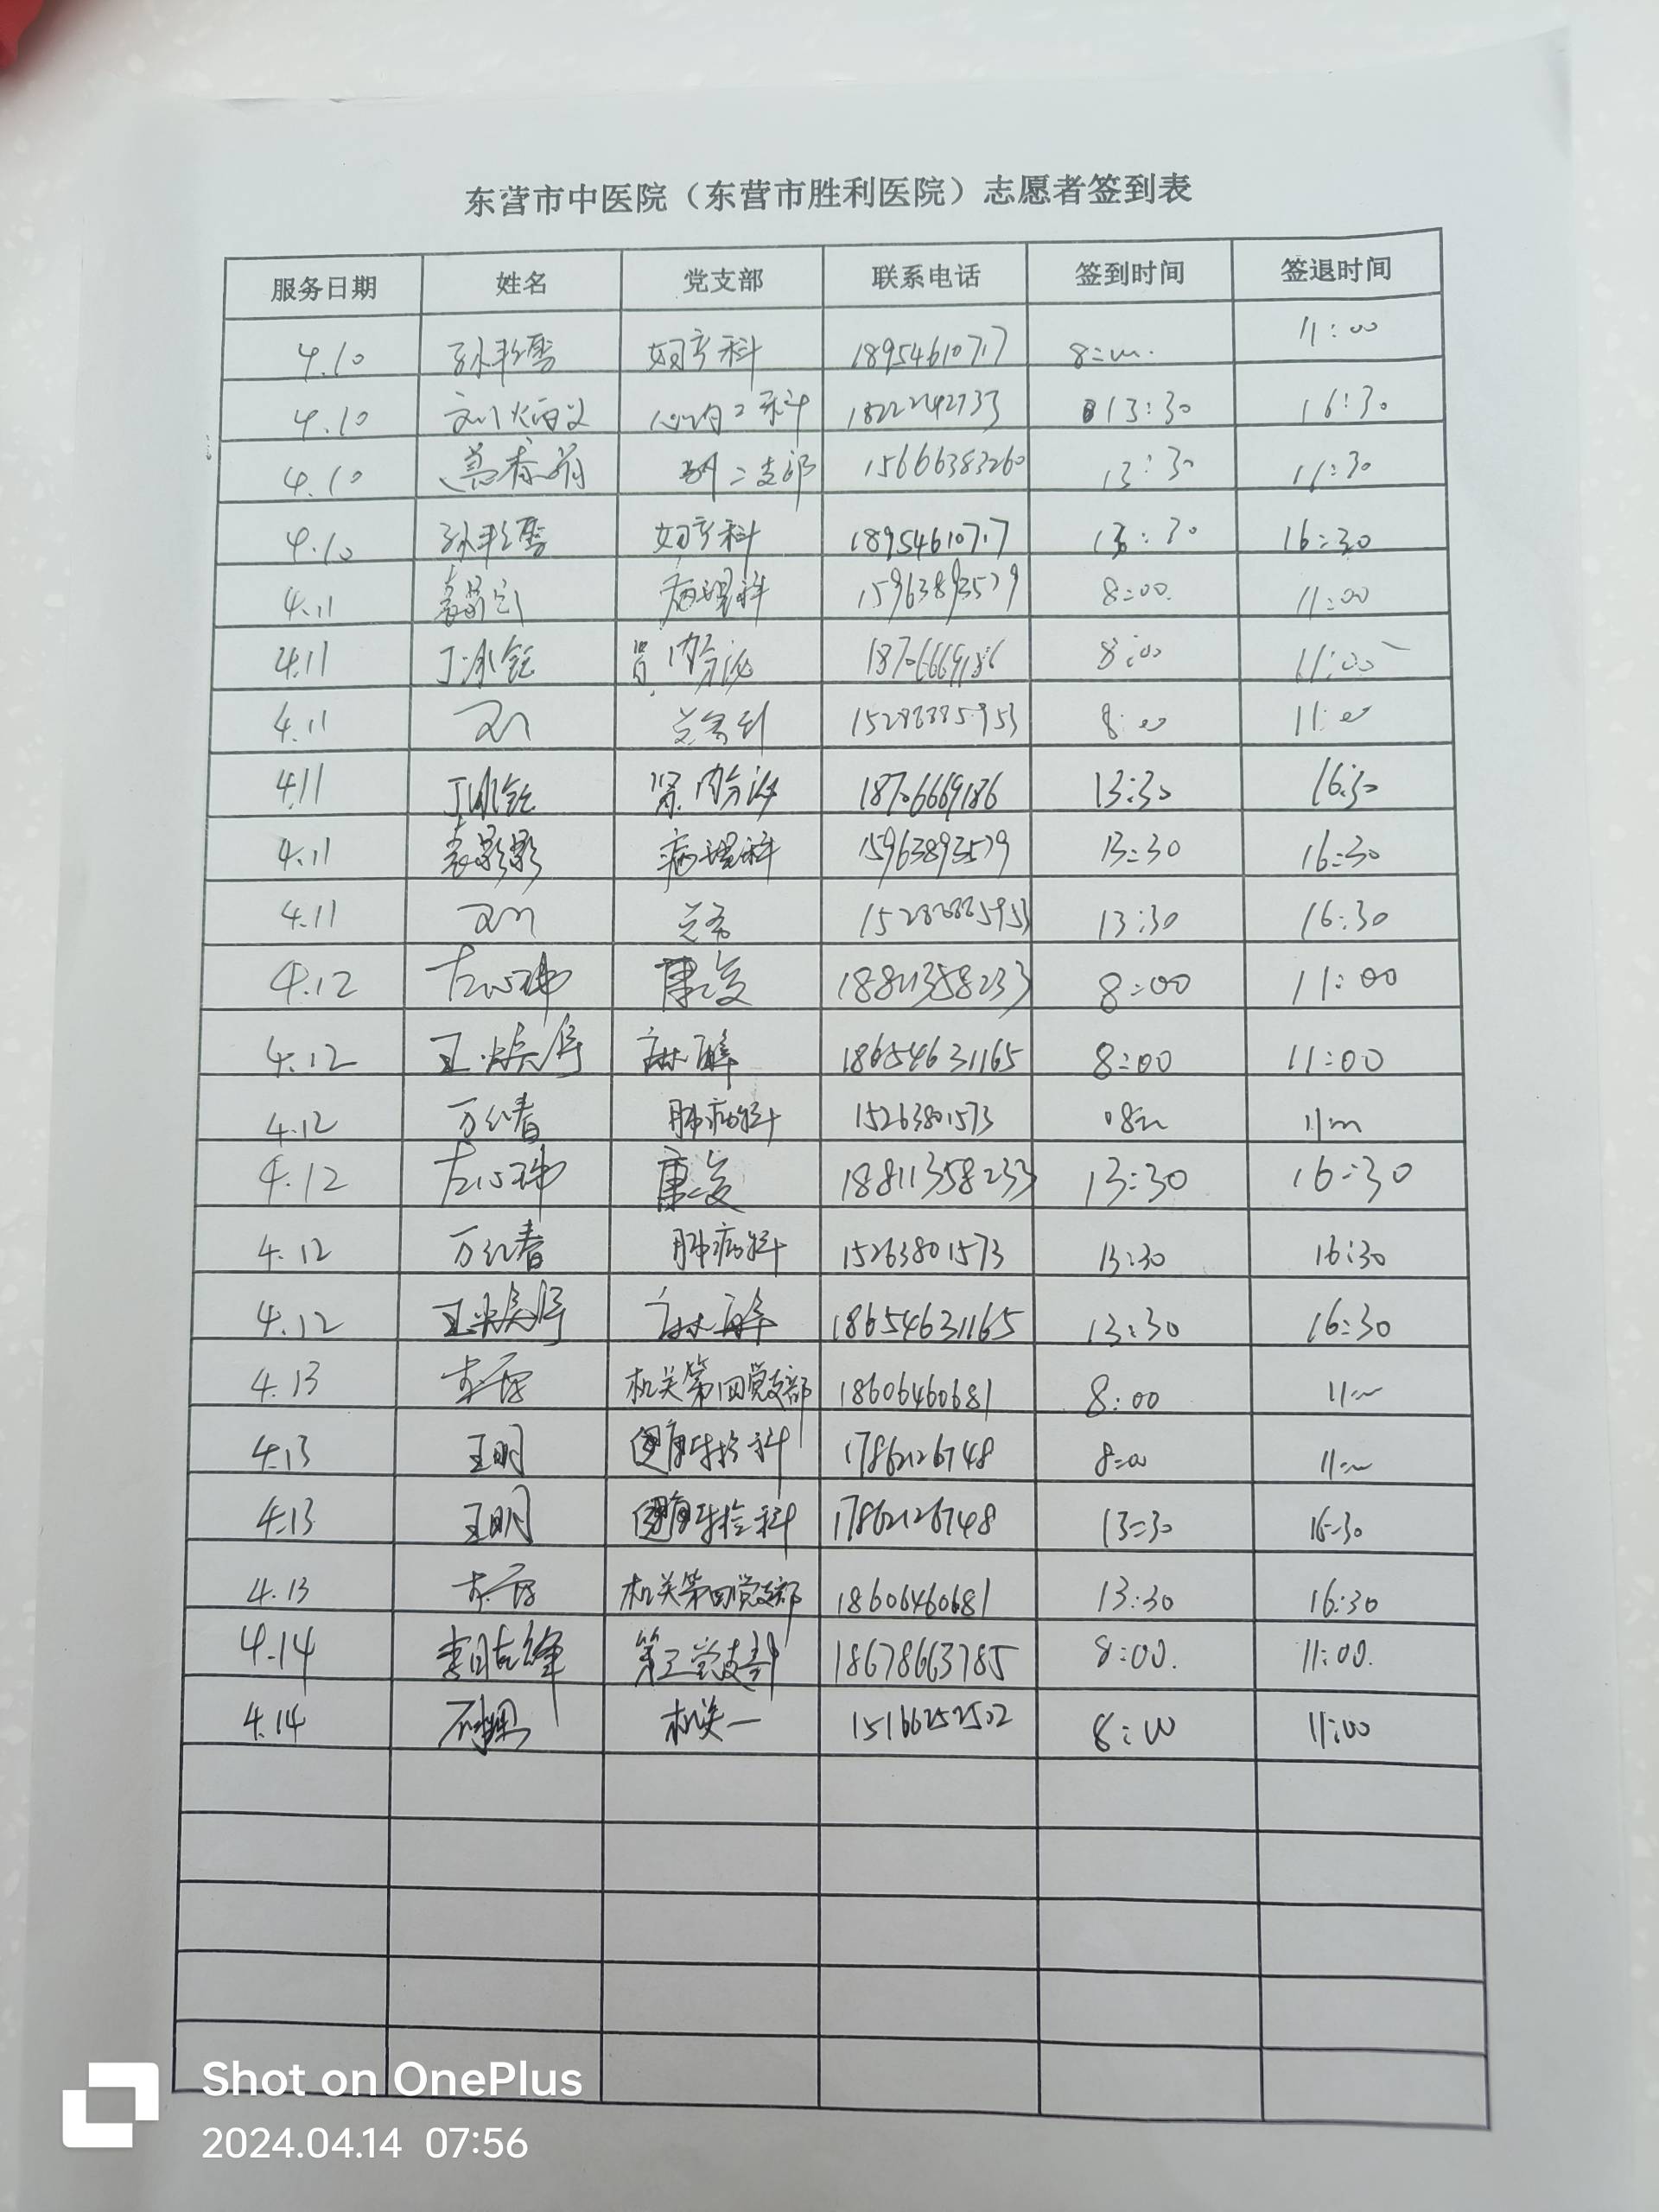 东营市中医院（东营市胜利医院）志愿者签到表
服务日期 姓名 党支部 联系电话 签到时间 签退时间
4.10 妇产科 18954610717 8:00 11:00
4.10 心内二科 13:30 16:30
4.10 二支部 15666383260 13:30 11:30
4.10 妇产科 18954610717 13:30 16:30
4.11 病理科 15963893579 8:00 11:00
4.11 丁冰钰 肾内分泌 18706669186 8:00 11:00
4.11 8:00 11:00
4.11 丁冰钰 肾内分泌 18706669186 13:30 16:30
4.11 袁影影 病理科 15963893579 13:30 16:30
4.11 13:30 16:30
4.12 康复 18811358233 8:00 11:00
4.12 麻醉 18654631165 8:00 11:00
4.12 万红春 肺病科 15263801573 08:00 11:00
4.12 康复 18811358233 13:30 16:30
4.12 万红春 肺病科 15263801573 13:30 16:30
4.12 麻醉 18654631165 13:30 16:30
4.13 机关第四党支部 18606460681 8:00 11:00
4.13 王明 健康体检科 17862126748 8:00 11:00
4.13 王明 健康体检科 17862126748 13:30 16:30
4.13 机关第四党支部 18606460681 13:30 16:30
4.14 党支部 18678663785 8:00. 11:00.
4.14 机关一 15166252502 8:00 11:00
Shot on OnePlus
2024.04.14 07:56